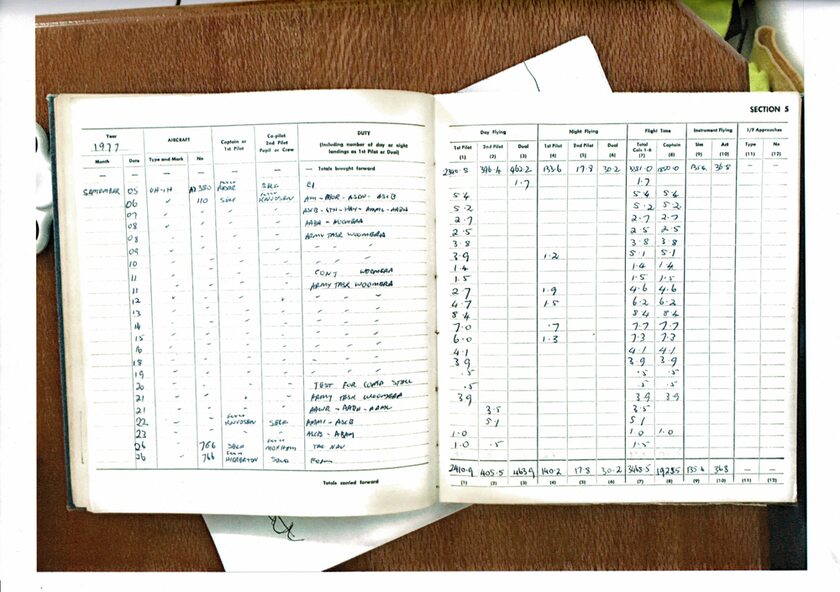 SECTION 5
Year
1977
Month
Date
AIRCRAFT
Type and Mark
No
Captain or
1st Pilot
Co-pilot
2nd Pilot
Pupil or Crew
DUTY
(Including number of day or night
landings as 1st Pilot or Dual)
— Totals brought forward
SEPTEMBER 05 UH-1H SELF
06 " 110 SELF KNUDSEN
07
08 WOOMERA
08 ARMY TASK WOOMERA
09 " " "
10 " " "
11 CONT WOOMERA
11 ARMY TASK WOOMERA
12 " " "
13 " " "
14 " " "
15 " " "
16 " " "
18 " " "
19 " " "
20 TEST FOR COMP STALL
21 ARMY TASK WOOMERA
21
22 KNUDSEN SELF
23
26 766 SELF TAC NAV
26 766 SELF FORM
Totals carried forward
Day Flying
Night Flying
Flight Time
Instrument Flying
I/F Approaches
1st Pilot 2nd Pilot Dual 1st Pilot 2nd Pilot Dual Total Cols 1-6 Captain Sim Act Type No
(1) (2) (3) (4) (5) (6) (7) (8) (9) (10) (11) (12)
396.4 462.2 133.6 17.8 30.2 135.4 36.8 — —
1.7 1.7
5.4 5.4 5.4
5.2 5.2 5.2
2.7 2.7 2.7
2.5 2.5 2.5
3.8 3.8 3.8
3.9 1.2 5.1 5.1
1.4 1.4 1.4
1.5 1.5 1.5
2.7 1.9 4.6 4.6
4.7 1.5 6.2 6.2
8.4 8.4 8.4
7.0 .7 7.7 7.7
6.0 1.3 7.3 7.3
4.1 4.1 4.1
3.9 3.9 3.9
.5 .5 .5
.5 .5 .5
3.9 3.9 3.9
3.5 3.5
5.1 5.1
1.0 1.0 1.0
1.0 .5 1.5
2410.9 405.5 463.9 140.2 17.8 30.2 3468.5 1928.5 135.4 36.8 — —
(1) (2) (3) (4) (5) (6) (7) (8) (9) (10) (11) (12)